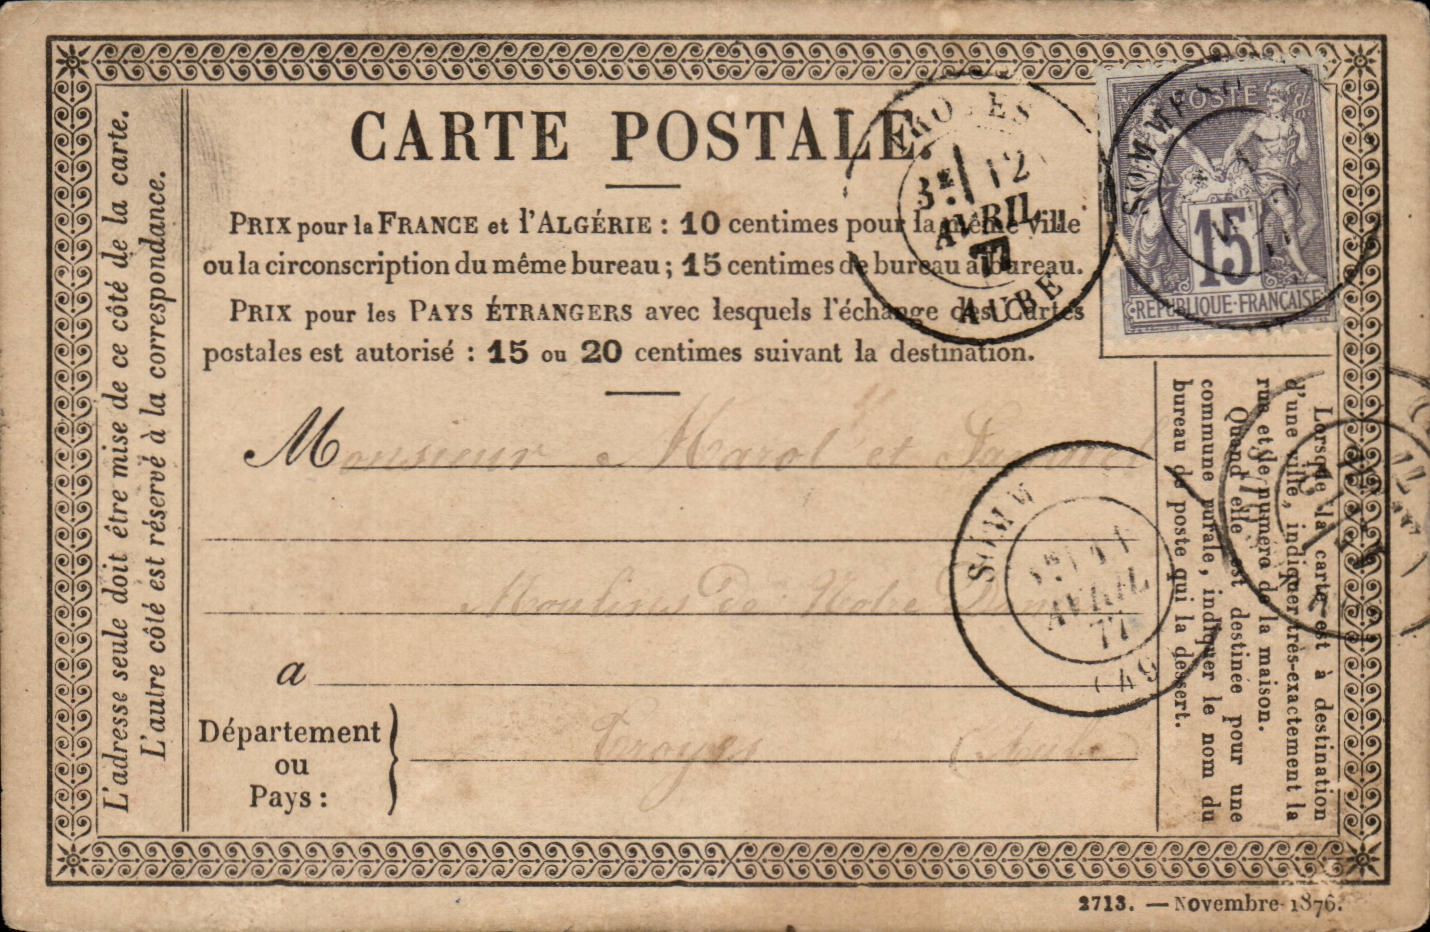 CARTE POSTALE.
PRIX pour la FRANCE et l'ALGÉRIE : 10 centimes pour la même ville
ou la circonscription du même bureau ; 15 centimes de bureau à bureau.
PRIX pour les PAYS ÉTRANGERS avec lesquels l'échange des Cartes
postales est autorisé : 15 ou 20 centimes suivant la destination.
Monsieur Marot et
Moulins de Notre Dame
a
Troyes (Aube)
Département
ou
Pays :
L'adresse seule doit être mise de ce côté de la carte.
L'autre côté est réservé à la correspondance.
Lorsque la carte est à destination
d'une ville, indiquer très-exactement la
rue et le numéro de la maison.
Quand elle est destinée pour une
commune rurale, indiquer le nom du
bureau de poste qui la dessert.
POSTE
15
REPUBLIQUE FRANÇAISE
TROYES
3E 12
AVRIL
77
AUBE
SOMMESOUS
SOMM
AVRIL
77
(49)
2713. — Novembre 1876.